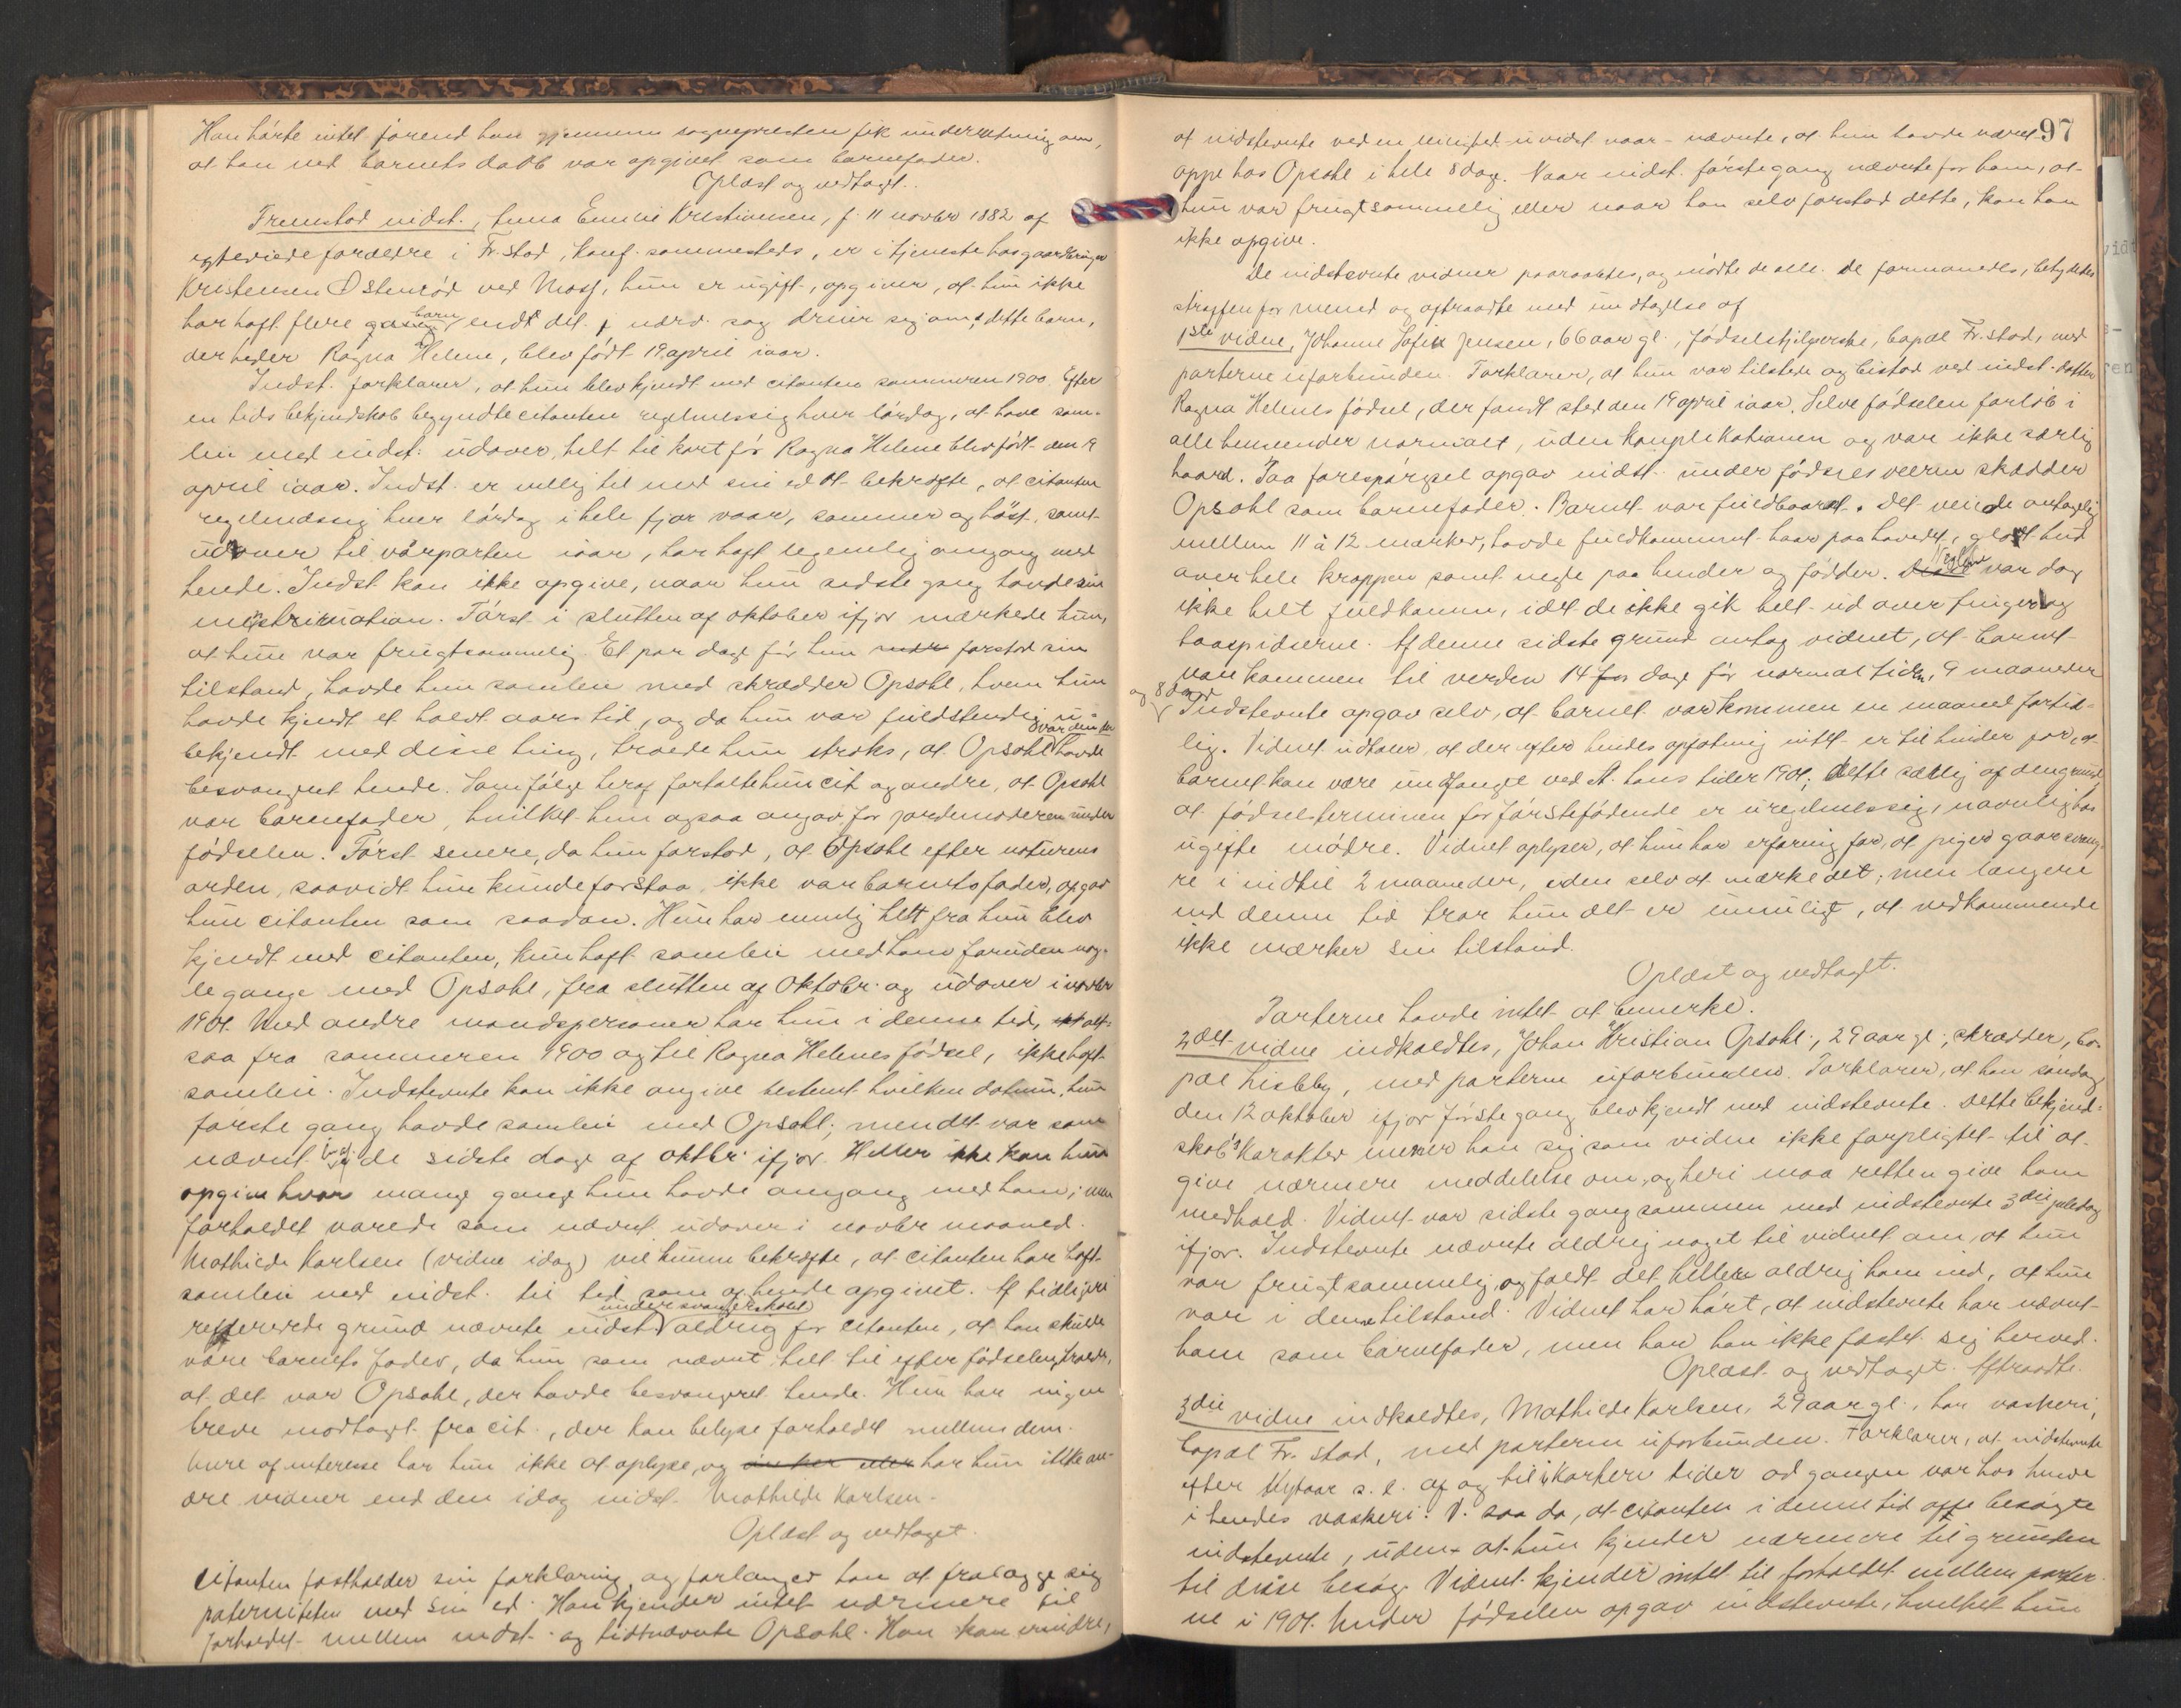 Han hørte intet førend han gjennem sognepresten fik underretning om,
at han ved barnets daab var opgivet som barnefader.
Oplæst og vedtaget.
Fremstod indst., Anna Emilie Kristiansen, f. 11 novbr 1882 af
egteviede forældre i Fr.stad, konf. sammesteds, er i tjeneste hos gaardbruger
Kristensen Østenrød ved Moss, hun er ugift, opgiver, at hun ikke
har haft flere barn endt det nærv. sag dreier sig om; dette barn,
der heder Ragna Helene, blev født 19 april iaar.
Indst. forklarer, at hun blev kjendt med citanten sommeren 1900. Efter
en tids bekjendskab begyndte citanten regelmessig hver lørdag, at have sam-
leie med indst. udover, helt til kort før Ragna Helene blev født den 19
april iaar. Indst. er villig til med sin ed at bekræfte, at citanten
regelmessig hver lørdag i hele fjor vaar, sommer og høst, samt
udover til vårparten iaar, har haft legemlig omgang med
hende. Indst. kan ikke opgive, naar hun sidste gang havde sin
menstruation. Først i slutten af oktober ifjor mærkede hun,
at hun var frugtsommelig. Et par dage før hun forstod sin
tilstand, havde hun samleie med skrædder Opsahl, hvem hun
havde kjendt et halvt aars tid, og da hun var fuldstendig u-
bekjendt med disse ting, troede hun straks, at Opsahl var den der havde
besvangret hende. Som følge heraf fortalte hun cit og andre, at Opsahl
var barnefader, hvilket hun ogsaa angav for jordemoderen under
fødselen. Først senere, da hun forstod, at Opsahl efter naturens
orden, saavidt hun kunde forstaa, ikke var barnets fader, opgav
hun citanten som saadan. Hun har nemlig helt fra hun blev
kjendt med citanten, kun haft samleie med ham foruden nog-
le gange med Opsahl, fra slutten af oktobr. og udover i novbr
1901. Med andre mandspersoner har hun i denne tid, alt-
saa fra sommeren 1900 og til Ragna Helenes fødsel, ikke haft
samleie. Indstevnte kan ikke angive bestemt hvilken datum, hun
første gang havde samleie med Opsahl; men det var som
nævnt i de sidste dage af oktbr. ifjor. Heller ikke kan hun
opgive hvor mange gange hun havde omgang med ham; men
forholdet varede som nævnt udover i novbr maaned.
Mathilde Karlsen (vidne idag) vil kunne bekræfte, at citanten har haft
samleie med indst. til tid som af hende opgivet. Af tidligere
refererede grund nævnte indst. under svangerskabet aldrig for citanten, at han skulde
være barnets fader, da hun som nævnt helt til efter fødselen, troede,
at det var Opsahl, der havde besvangret hende. Hun har ingen
breve modtaget fra cit., der kan belyse forholdet mellem dem.
Mere af interesse har hun ikke at oplyse, og har hun ikke an-
dre vidner end den idag indst. Mathilde Karlsen.
Oplæst og vedtaget.
Citanten fastholder sin forklaring, og forlanger han at fralægge sig
paterniteten med sin ed. Han kjender intet nærmere til
forholdet mellem indst. og tidtnævnte Opsahl. Han kan erindre,
97
at indstevnte ved en leilighed uvidst naar - nævnte, at hun havde været
oppe hos Opsahl i hele 8 dage. Naar indst. første gang nævnte for ham, at
hun var frugtsommelig eller naar han selv forstod dette, kan han
ikke opgive.
De indstevnte vidner paaraabtes, og mødte de alle. De formanedes, betydedes
straffen for mened og aftraadte med undtagelse af
1ste vidne, Johanne Sofie Jensen, 66 aar gl., fødselshjelperske, bopæl Fr.stad, med
parterne uforbunden. Forklarer, at hun var tilstede og bistod ved indst. datter
Ragna Helenes fødsel, der fandt sted den 19 april iaar. Selve fødselen forløb i
alle henseender normalt, uden komplikationer og var ikke særlig
haard. Paa forespørgsel opgav indst. under fødselsveerne skrædder
Opsahl som barnefader. Barnet var fuldbaaret. Det veiede antagelig
mellem 11 à 12 marker, havde fuldkomment haar paa hovedet, glat hud
over hele kroppen samt negle paa hender og fødder. Neglene var dog
ikke helt fuldkomne, idet de ikke gik helt ud over finger og
taaspidserne. Af denne sidste grund antog vidnet, at barnet
var kommen til verden 14 dage før normal tiden, 9 maaneder
og 8 dage
Indstevnte opgav selv, at barnet var kommen en maaned fortid-
lig. Vidnet udtaler, at der efter hendes opfatning intet er til hinder for, at
barnet kan være undfanget ved St. hans tider 1901, dette særlig af den grund
at fødselsterminen for førstefødende er uregelmessig, navnlig hos
ugifte mødre. Vidnet oplyser, at hun har erfaring for, at piger gaar svang-
re i indtil 2 maaneder, uden selv at mærke det; men længere
end denne tid tror hun det er umuligt, at vedkommende
ikke mærker sin tilstand.
Oplæst og vedtaget.
Parterne havde intet at bemerke.
2det vidne indkaldtes, Johan Kristian Opsahl, 29 aar gl., skrædder, bo-
pæl Lisleby, med parterne uforbunden. Forklarer, at han søndag
den 12 oktober ifjor første gang blev kjendt med indstevnte. Dette bekjend-
skab's karakter mener han sig som vidne ikke forpligtet til at
give nærmere meddelelse om, og heri maa retten give ham
medhold. Vidnet var sidste gang sammen med indstevnte 3die juledag
ifjor. Indstevnte nævnte aldrig noget til vidnet om, at hun
var frugtsommelig, og faldt det heller aldrig ham ind, at hun
var i denne tilstand. Vidnet har hørt, at indstevnte har nævnt
ham som barnefader, men har han ikke fæstet sig herved.
Oplæst og vedtaget. Aftraadte.
3die vidne indkaldtes, Mathilde Karlsen, 29 aar gl., har vaskeri,
bopæl Fr.stad, med parterne uforbunden. Forklarer, at indstevnte
efter Nytaar s. l. af og til i kortere tider ad gangen var hos hende
i hendes vaskeri. V. saa da, at citanten i denne tid ofte besøgte
indstevnte, uden at hun kjender nærmere til grunden
til disse besøg. Vidnet kjender intet til forholdet mellem parter-
ne i 1901. Under fødselen opgav indstevnte, hvilket hun